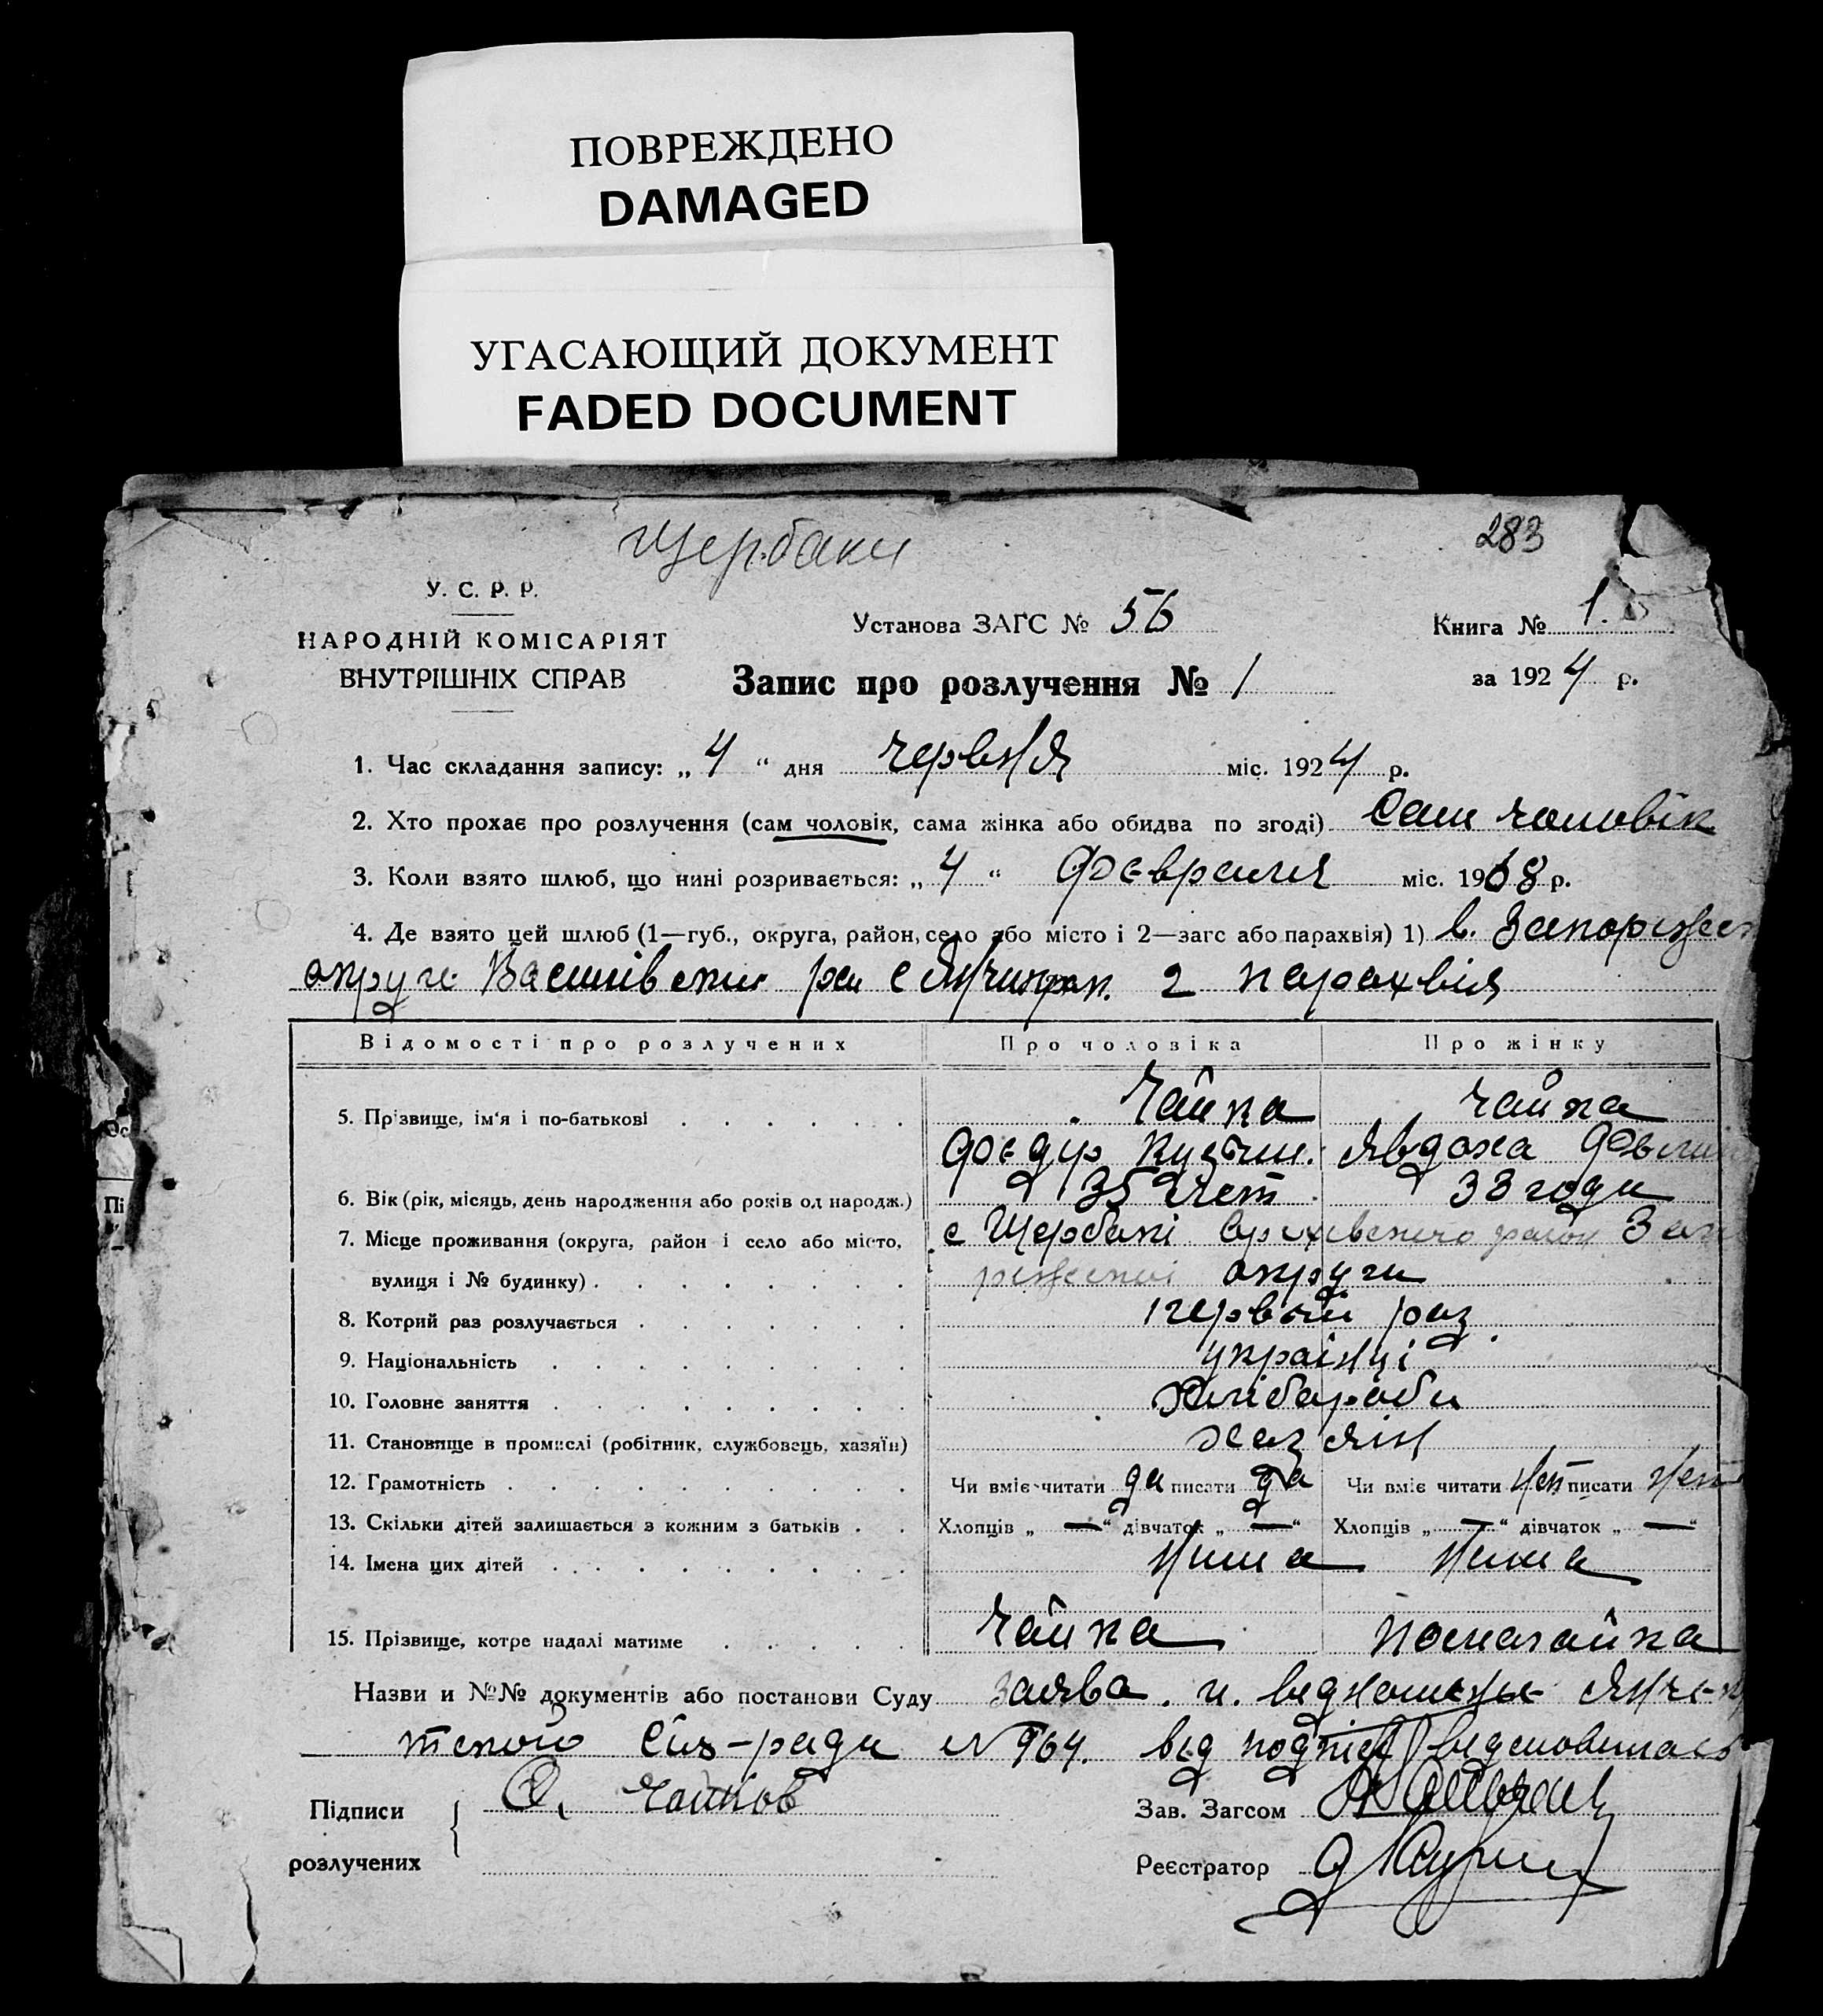 ПОВРЕЖДЕНО
DAMAGED
УГАСАЮЩИЙ ДОКУМЕНТ
FADED DOCUMENT
Щербаки
283
У. С. Р. Р.
НАРОДНІЙ КОМІСАРІЯТ
ВНУТРІШНІХ СПРАВ
Установа ЗАГС № 56
Книга № 1.
Запис про розлучення № 1
за 1924 р.
1. Час складання запису: „4“ дня червня міс. 1924 р.
2. Хто прохає про розлучення (сам чоловік, сама жінка або обидва по згоді) Сам чоловік
3. Коли взято шлюб, що нині розривається: „4“ Февраля міс. 1908 р.
4. Де взято цей шлюб (1—губ., округа, район, село або місто і 2—загс або парахвія) 1) в. Запоріжск
округі Василівски ра с 2 парахвія
Відомості про розлучених Про чоловіка Про жінку
5. Прізвище, ім'я і по-батькові Чайка Чайка
Федир Кузьм. Явдоха
6. Вік (рік, місяць, день народження або років од народж.) 35 лет 33 годи
7. Місце проживання (округа, район і село або місто, с Щербакі Оріхівского район Зап
вулиця і № будинку) ріжскоі округи
8. Котрий раз розлучається первый раз
9. Національність українці
10. Головне заняття Хлібароби
11. Становище в промислі (робітник, службовець, хазяїн) хазяїн
12. Грамотність Чи вміє читати да писати да Чи вміє читати нет писати нет
13. Скільки дітей залишається з кожним з батьків Хлопців „—“ дівчаток „—“ Хлопців „—“ дівчаток „—“
14. Імена цих дітей Нима Нима
15. Прізвище, котре надалі матиме Чайка
Назви и №№ документів або постанови Суду заява. и. відношеннє Янчек
тского Сіль-ради № 964. від подпісі відмовилась
Підписи Чайков Зав. Загсом
розлучених Реєстратор